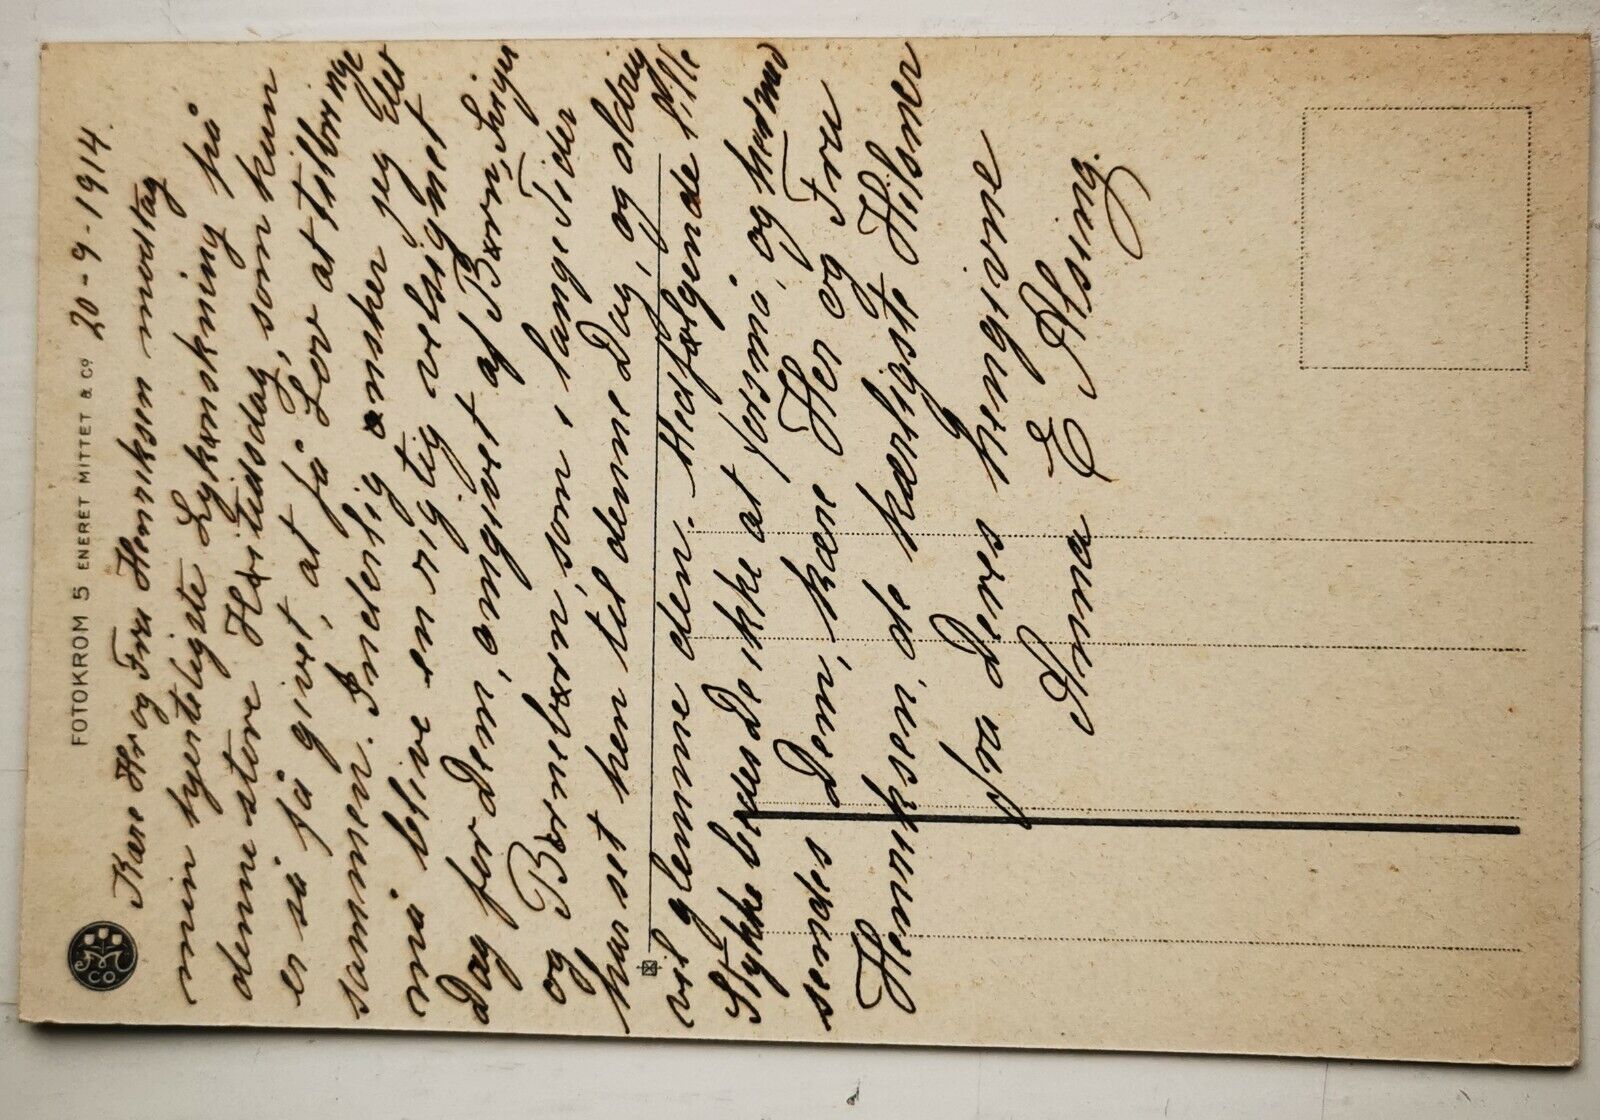 FOTOKROM 5 ENERET MITTET & Co
20-9-1914.
Kære Hr og Fru Henriksen modtag
min hjerteligste Lykønskning på
denne store Højtidsdag, som kun
er så få givet, at få Lov at tilbringe
sammen. Inderlig ønsker jeg det
må blive en rigtig velsignet
Dag for Dem, omgivet af Børn, Sviger
og Børnebørn, som i lange Tider
har set hen til denne Dag, og aldrig
vil glemme den. Medfølgende lille
Stykke bedes De ikke at forsmå, og hermed
sendes Dem, kære Her og Fru
Henriksen, de kærligste Hilsner
fra Deres hengivne
Anna
CO